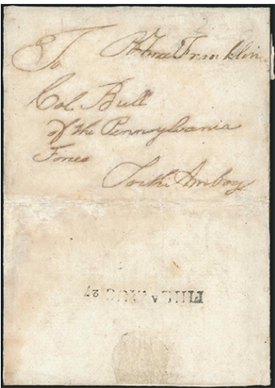 To B Free Franklin
Col. Bull
of the Pennsylvania
Forces
Amboy
PHILA AUG 27